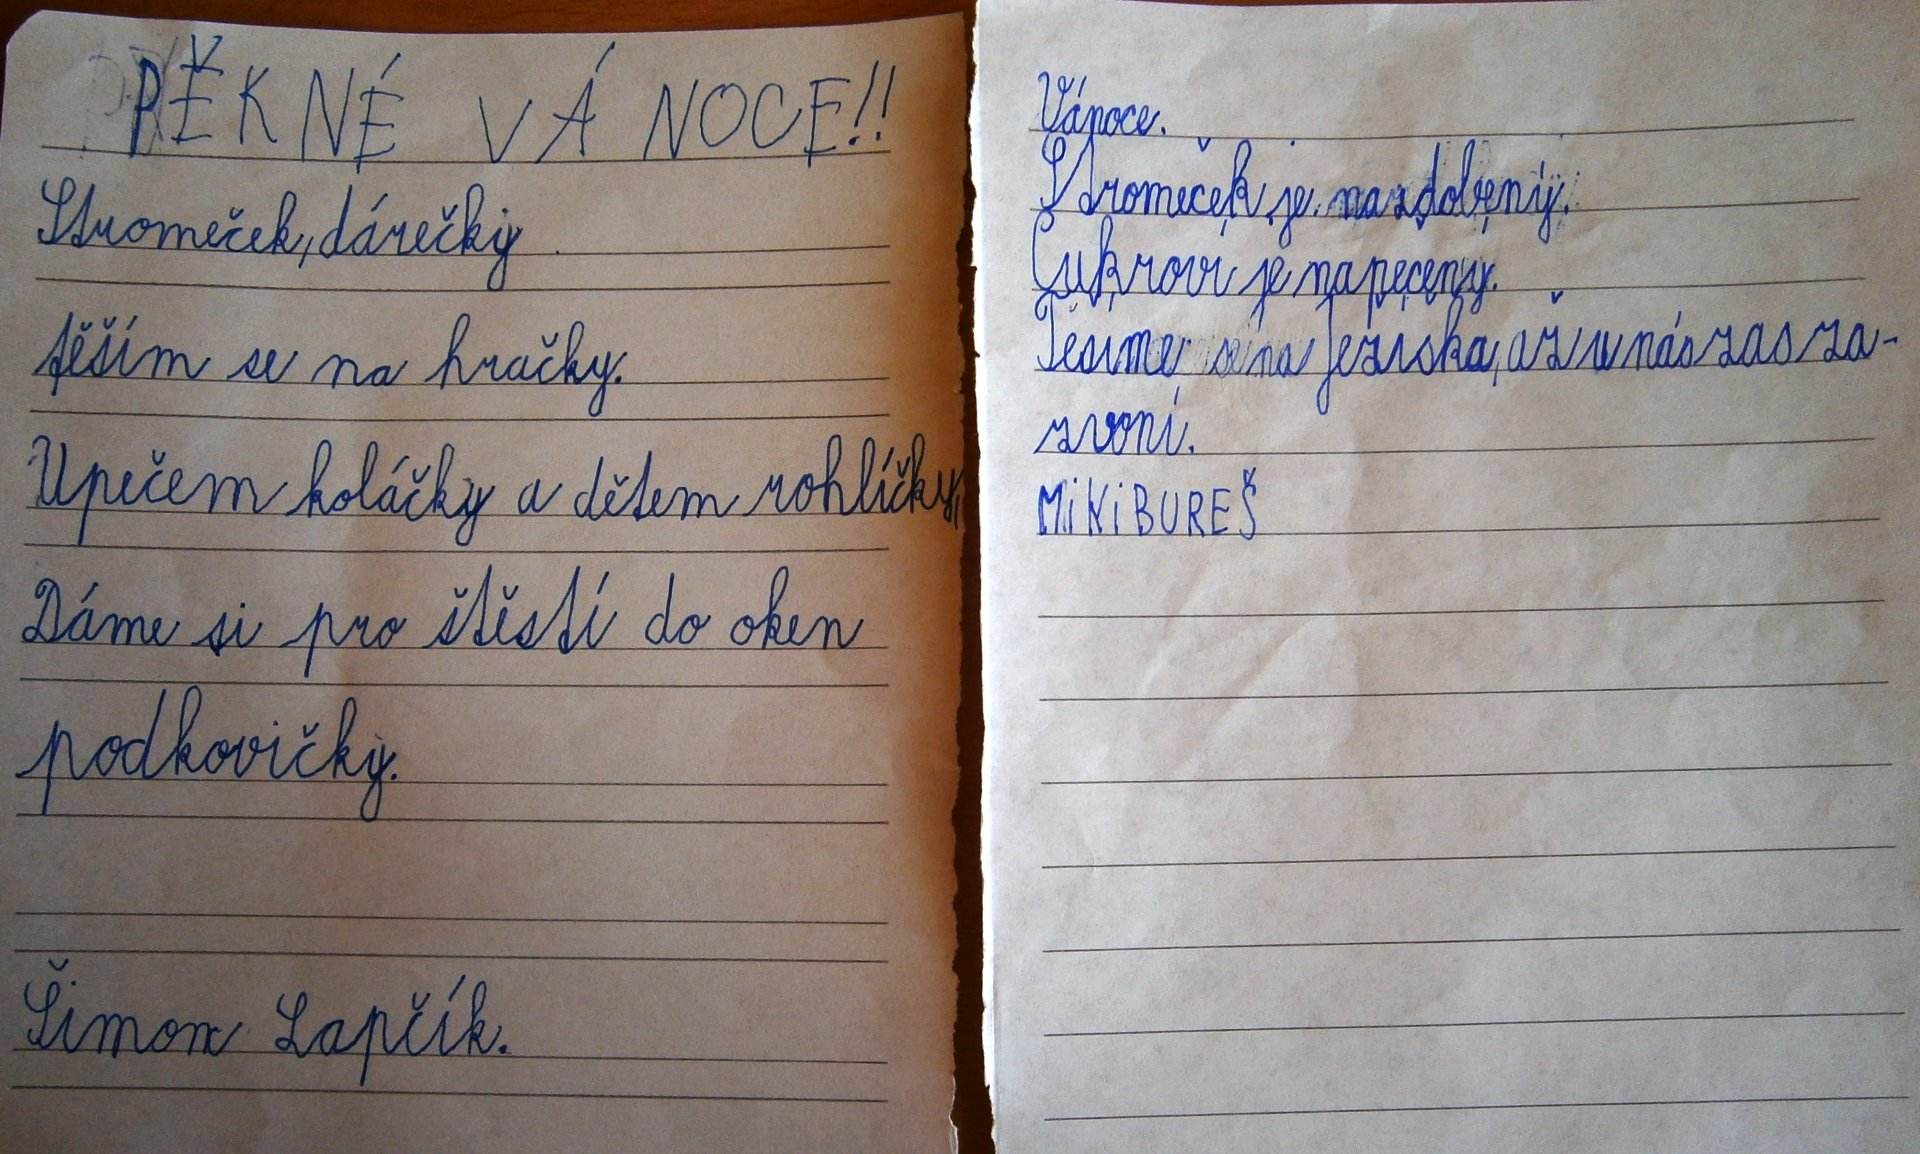 PĚKNÉ VÁNOCE!!
Stromeček, dárečky
těším se na hračky.
Upečem koláčky a dětem rohlíčky,
Dáme si pro štěstí do oken
podkovičky.
Šimon Lapčík.
Vánoce.
Stromeček je nazdobený.
Cukroví je napečený.
Těšíme se na Ježíška, až u nás zas za-
zvoní.
MiKi BUREŠ